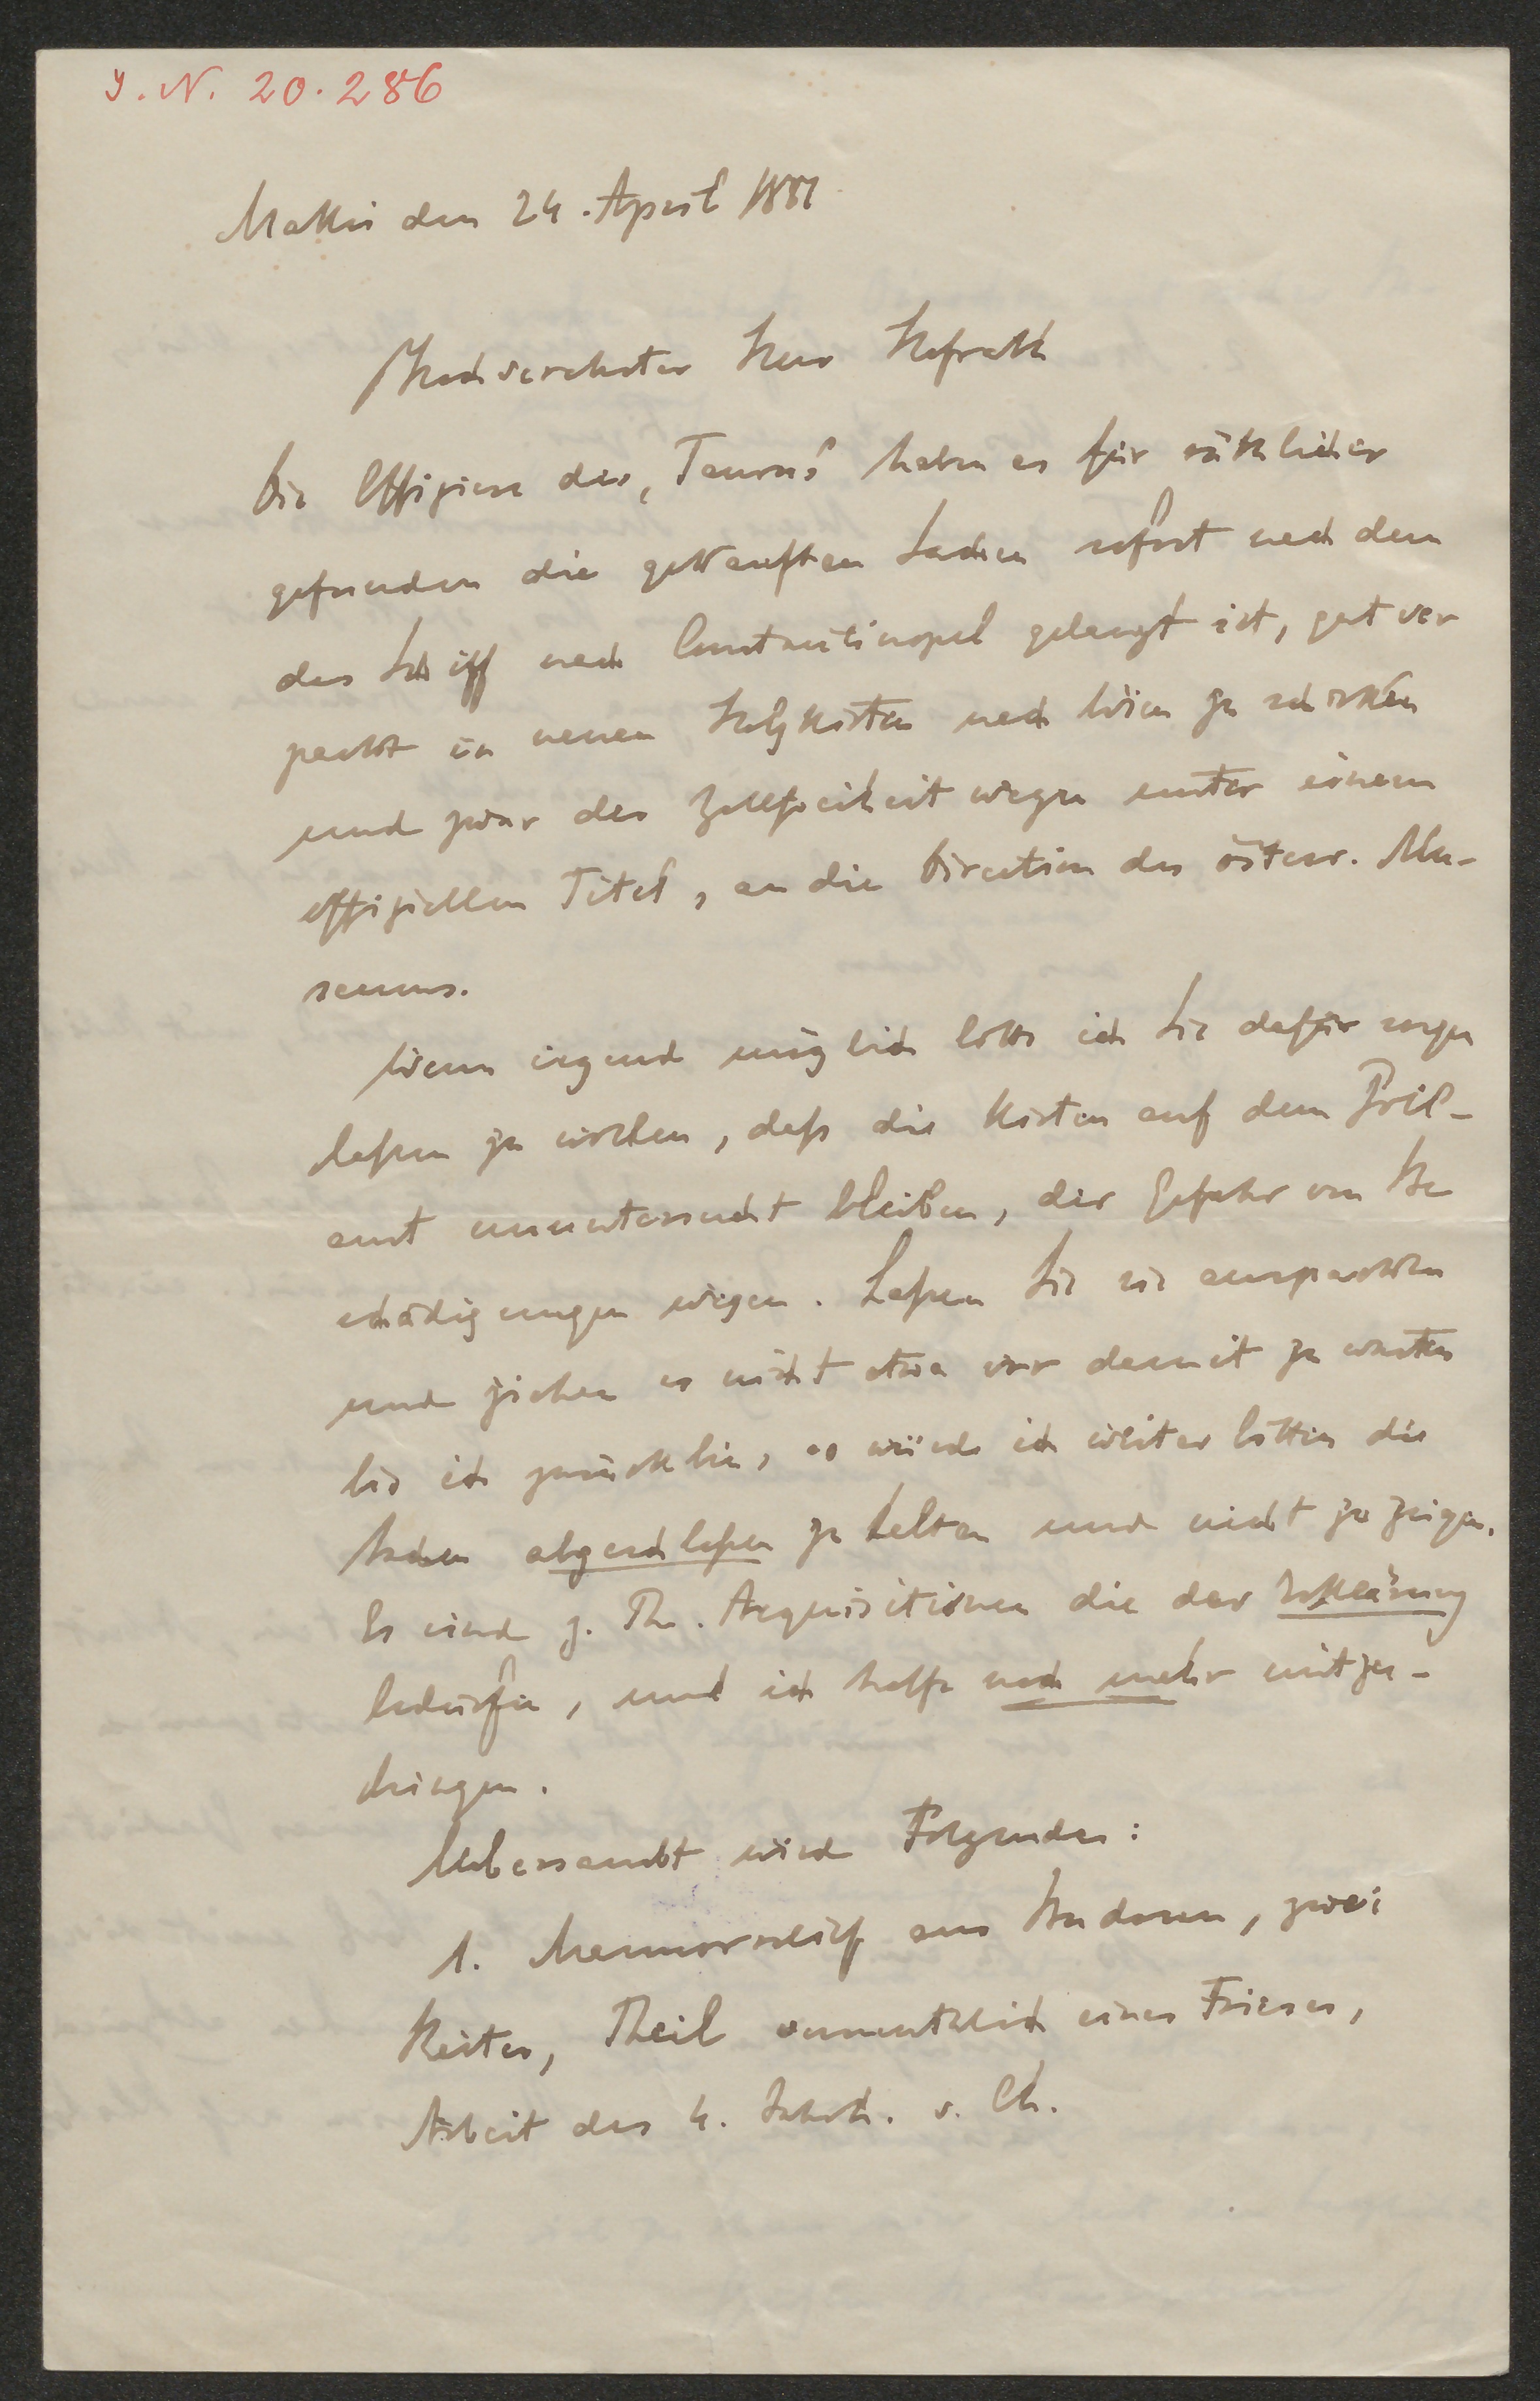 J. N. 20.286
Makri den 24. April 1881
Hochverehrter Herr Hofrath
Die Offiziere des „Taurus“ haben es für räthlicher
gefunden die gekauften Sachen sofort nach dem
das Schiff nach Constantinopel gelangt ist, gut ver
packt in neuen Holzkisten nach Wien zu schicken
und zwar der Zollfreiheit wegen unter einem
offiziellen Titel, an die Direction des österr. Mu-
seums.
Wenn irgend möglich bitte ich Sie dafür sorgen
lassen zu wollen, daß die Kisten auf dem Zoll-
amt ununtersucht bleiben, der Gefahr von Be
schädigungen wegen. Laßen Sie sie auspacken
und ziehen es nicht etwa vor damit zu warten
bis ich zurück bin, so würde ich weiter bitten die
Sachen abgeschloßen zu halten und nicht zu zeigen.
Es sind z. Th. Acquisitionen die der Erklärung
bedürfen, und ich hoffe noch mehr mitzu-
bringen.
Uebersandt wird Folgendes:
1. Marmorrelief aus Budrun, zwei
Reiter, Theil vermuthlich eines Frieses,
Arbeit des 4. Jahrh. v. Ch.